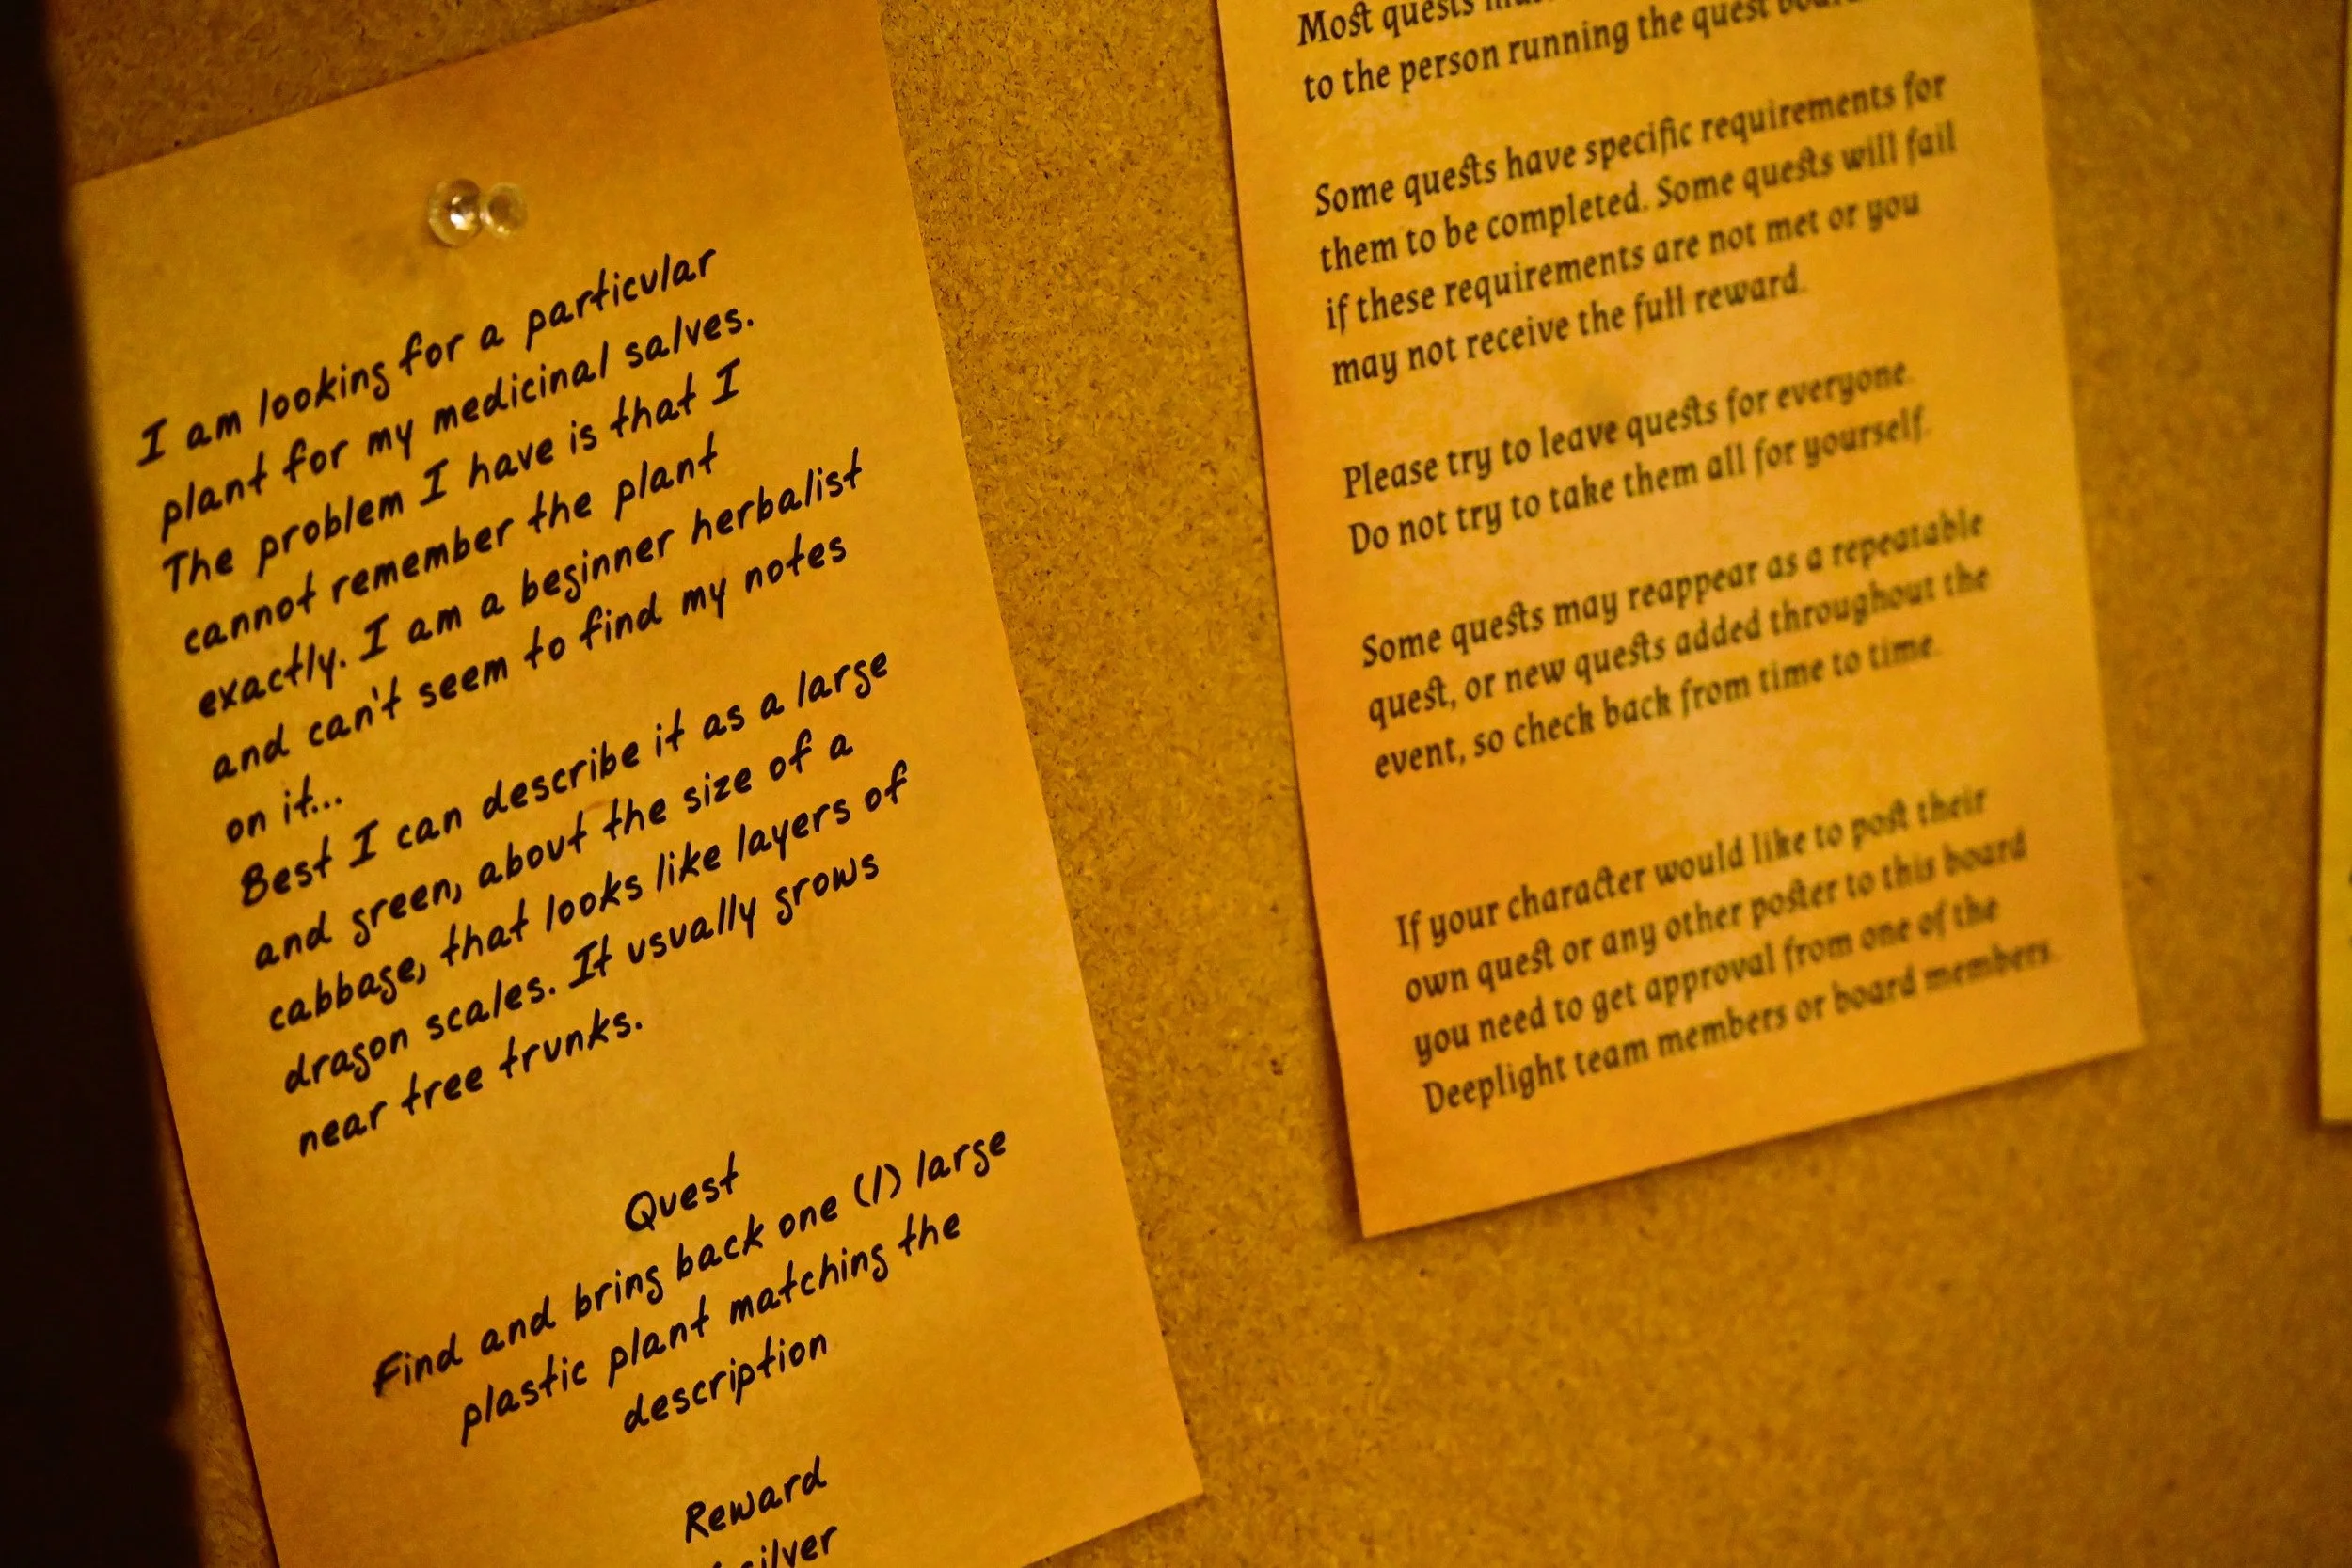 I am looking for a particular
plant for my medicinal salves.
The problem I have is that I
cannot remember the plant
exactly. I am a beginner herbalist
and can't seem to find my notes
on it...
Best I can describe it as a large
and green, about the size of a
cabbage, that looks like layers of
dragon scales. It usually grows
near tree trunks.
Quest
Find and bring back one (1) large
plastic plant matching the
description
Reward
silver
Most quests
to the person running the quest
Some quests have specific requirements for
them to be completed. Some quests will fail
if these requirements are not met or you
may not receive the full reward.
Please try to leave quests for everyone.
Do not try to take them all for yourself.
Some quests may reappear as a repeatable
quest, or new quests added throughout the
event, so check back from time to time.
If your character would like to post their
own quest or any other poster to this board
you need to get approval from one of the
Deeplight team members or board members.